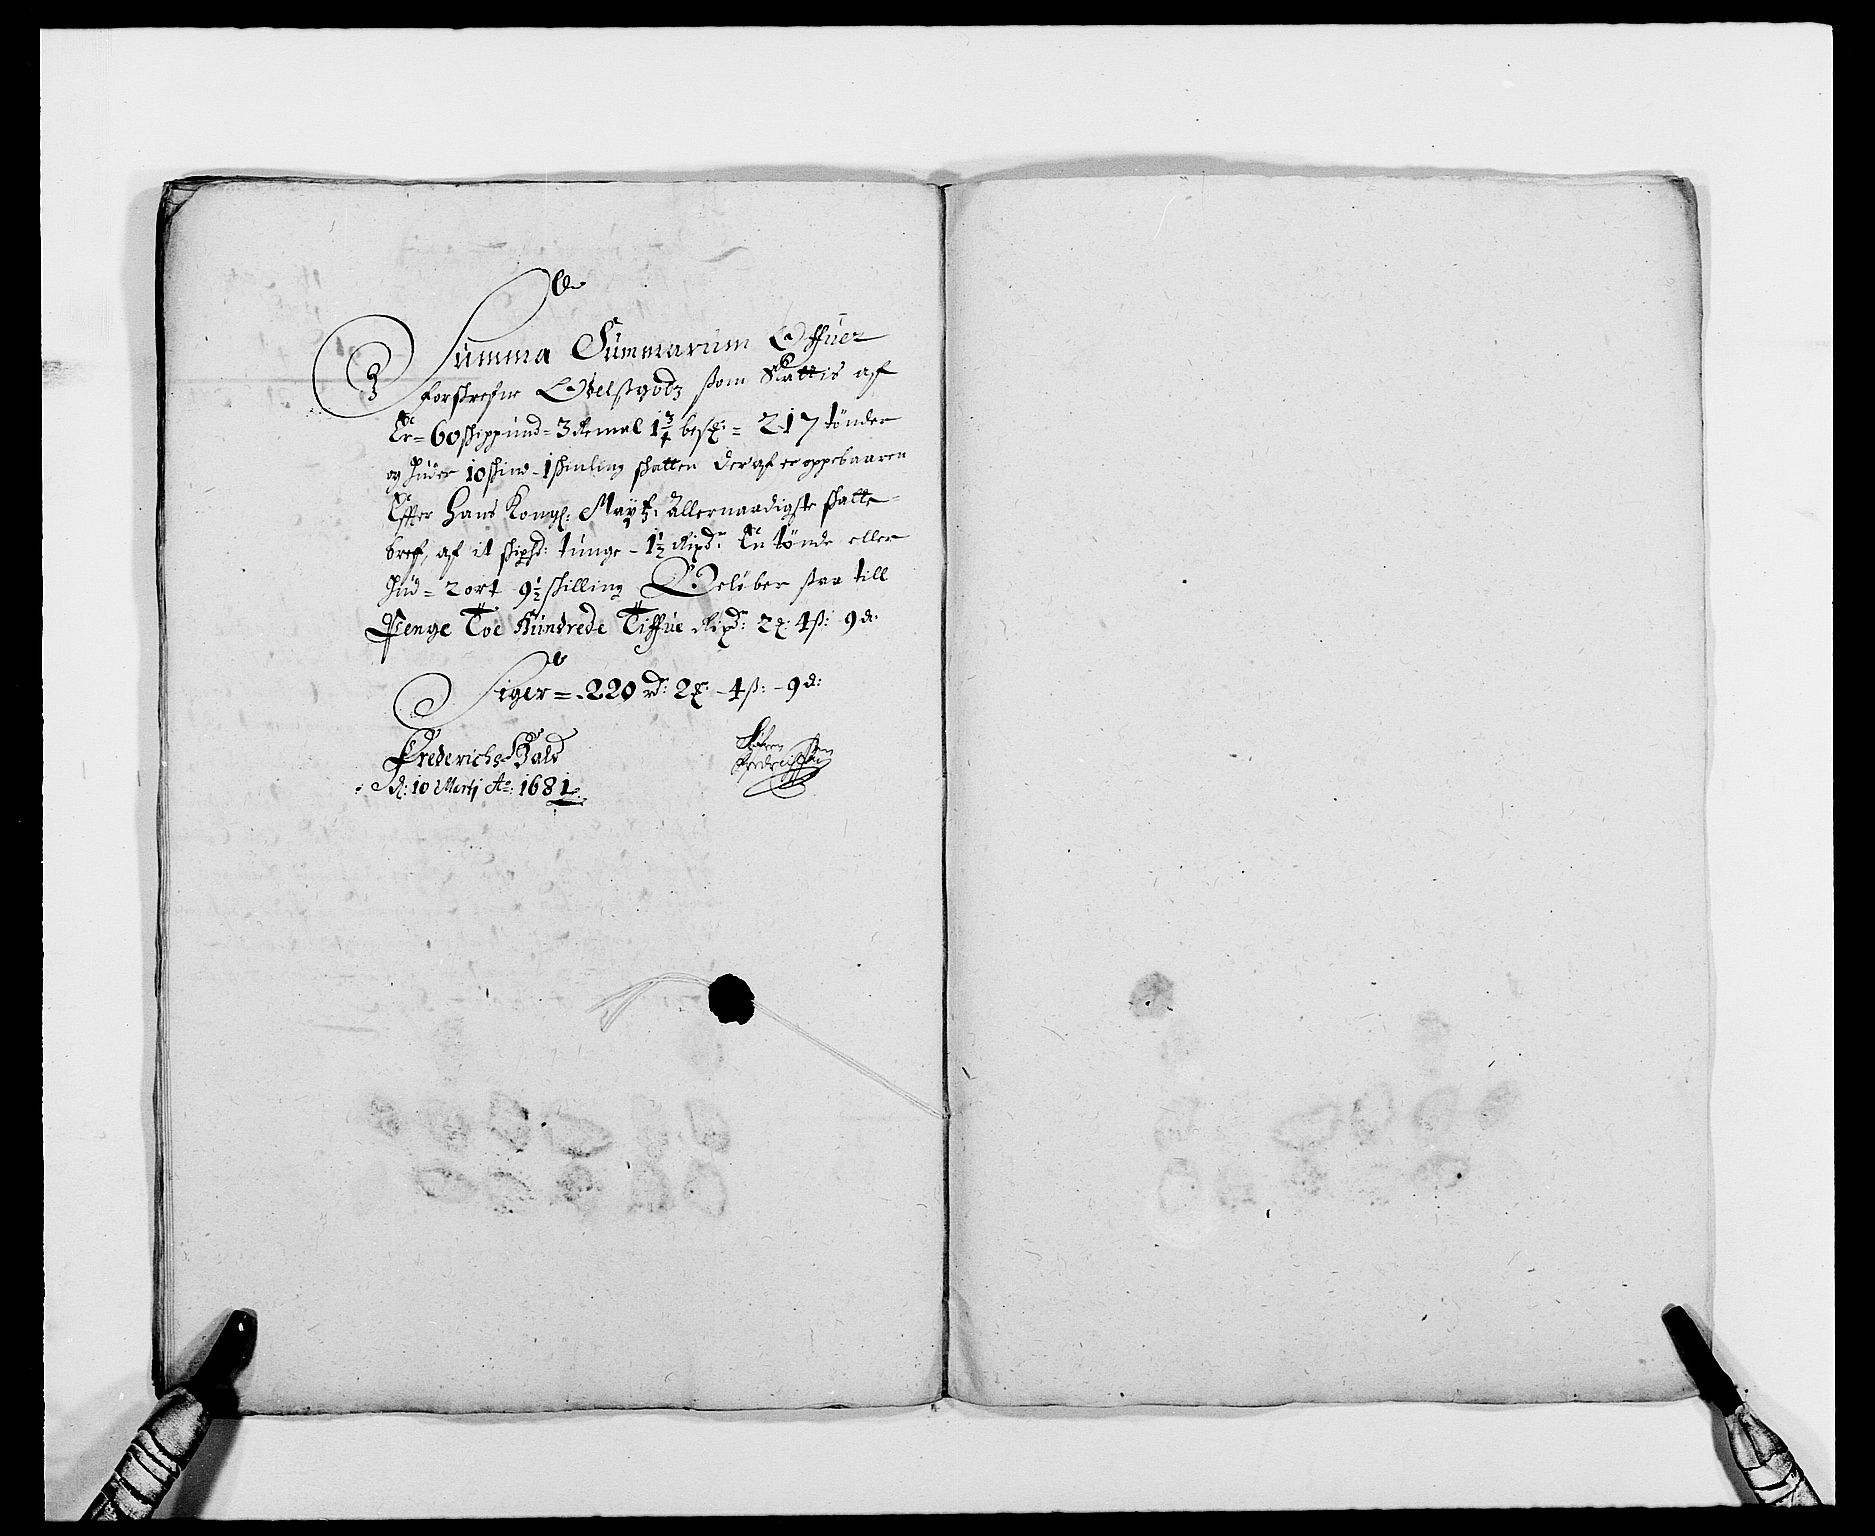 Summa Summarum Offuer
forskrefne Odelsgodz som Skattis af
Er= 60 skippund= 3 Remæl 1¾ besk: = 217 tønder
og huder 10 skind - 1 skinling skatten der af er oppebaaren
Effter Hans Kongl: Maytz: Allernaadigste skatte-
bref, af it skipd: tunge - 1½ Rixdr. En tønde eller
hud = 2 ort 9½ skilling Beløber saa till
Penge Toe Hundrede Tiffue Rixdr: 2 : 4 ß: 9 d:
Siger = 220 rd: 2 : - 4 ß: - 9 d:
Frederichs Hald
d: 10 Martj Ao: 1681